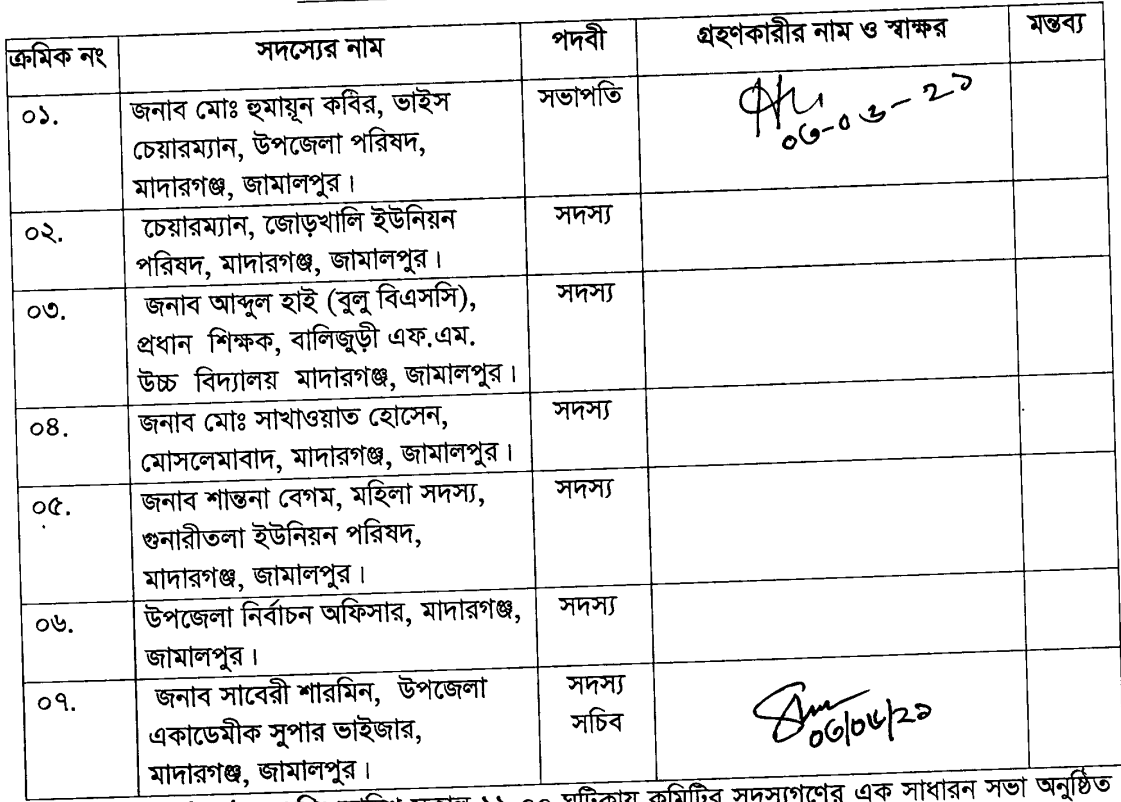 ক্রমিক নং সদস্যের নাম পদবী গ্রহণকারীর নাম ও স্বাক্ষর মন্তব্য
০১. জনাব মোঃ হুমায়ূন কবির, ভাইস সভাপতি
চেয়ারম্যান, উপজেলা পরিষদ,
মাদারগঞ্জ, জামালপুর।
০২. চেয়ারম্যান, জোড়খালি ইউনিয়ন সদস্য
পরিষদ, মাদারগঞ্জ, জামালপুর।
০৩. জনাব আব্দুল হাই (বুলু বিএসসি), সদস্য
প্রধান শিক্ষক, বালিজুড়ী এফ.এম.
উচ্চ বিদ্যালয় মাদারগঞ্জ, জামালপুর।
০৪. জনাব মোঃ সাখাওয়াত হোসেন, সদস্য
মোসলেমাবাদ, মাদারগঞ্জ, জামালপুর।
০৫. জনাব শান্তনা বেগম, মহিলা সদস্য, সদস্য
গুনারীতলা ইউনিয়ন পরিষদ,
মাদারগঞ্জ, জামালপুর।
০৬. উপজেলা নির্বাচন অফিসার, মাদারগঞ্জ, সদস্য
জামালপুর।
০৭. জনাব সাবেরী শারমিন, উপজেলা সদস্য
একাডেমীক সুপার ভাইজার, সচিব
মাদারগঞ্জ, জামালপুর।
ঘটিকায় কমিটির সদস্যগণের এক সাধারন সভা অনুষ্ঠিত